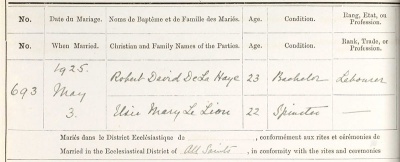 No. Date du Mariage. Noms de Baptême et de Famille des Mariés. Age. Condition. Rang, Etat, ou Profession.
No. When Married. Christian and Family Names of the Parties. Age. Condition. Rank, Trade, or Profession.
1925.
693 May Robert David De La Haye 23 Bachelor Labourer
3. Mary Le Lion 22 Spinster —
Mariés dans le District Ecclésiastique de , conformément aux rites et cérémonies de
Married in the Ecclesiastical District of All Saints , in conformity with the rites and ceremonies